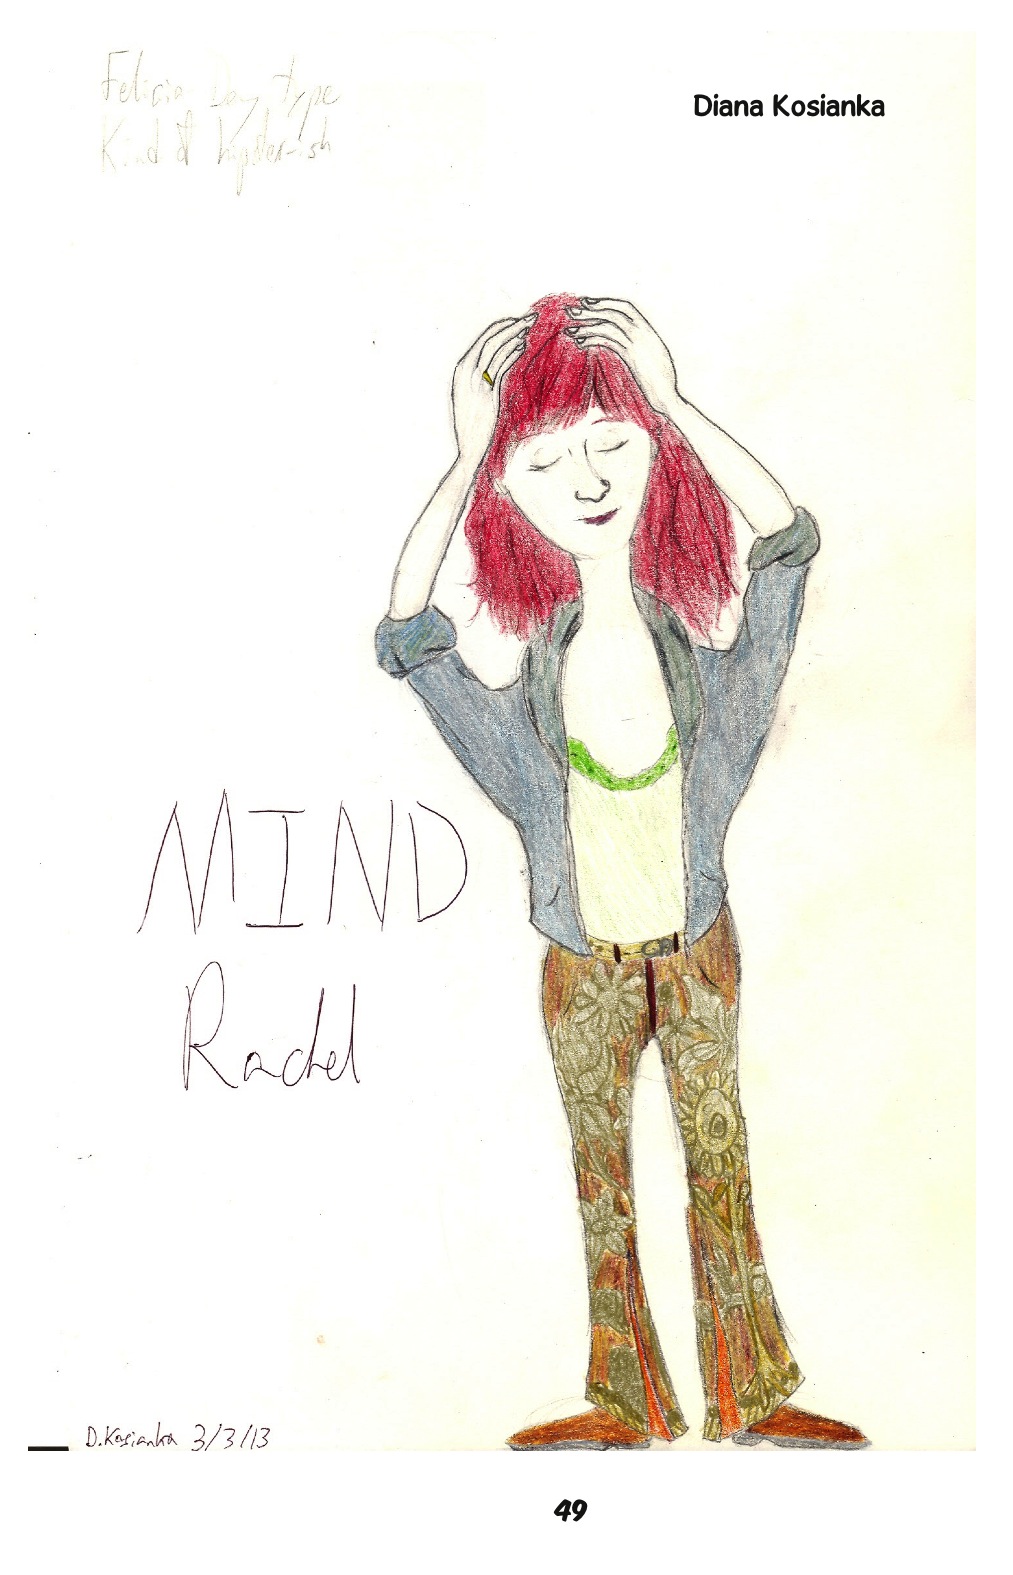 Felicia Day type
Kind of hipster-ish
Diana Kosianka
MIND
Rachel
D.Kosianka 3/3/13
49